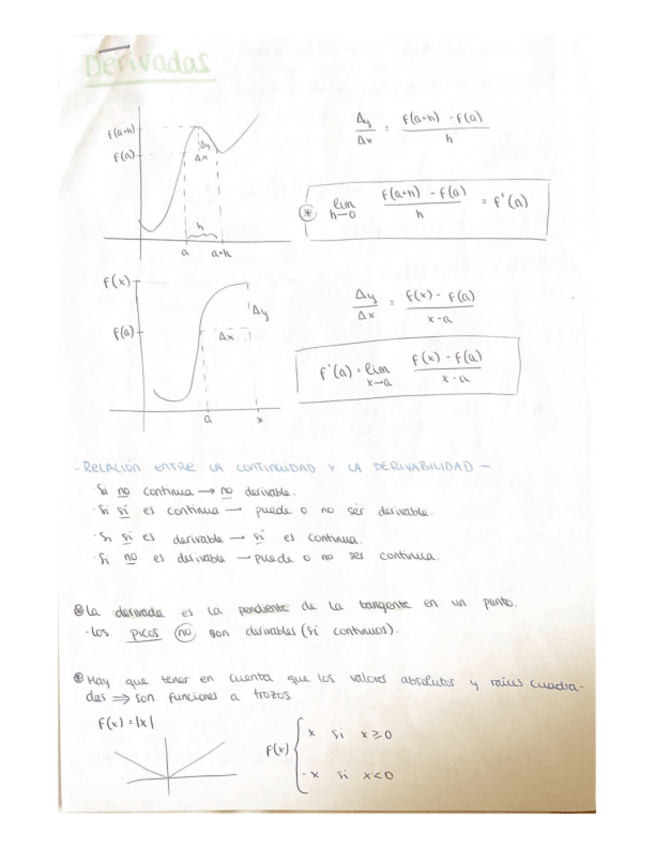 Derivadas
f(a+h)
f(a)
Δy
Δx
h
a a+h
Δy/Δx = f(a+h) - f(a) / h
* lim h→0 f(a+h) - f(a) / h = f'(a)
f(x)
f(a)
Δy
Δx
a x
Δy/Δx = f(x) - f(a) / x-a
f'(a) = lim x→a f(x) - f(a) / x-a
- RELACIÓN ENTRE LA CONTINUIDAD Y LA DERIVABILIDAD -
Si no continua → no derivable.
· Si sí es continua → puede o no ser derivable.
· Si sí es derivable → sí es continua.
· Si no es derivable → puede o no ser continua.
* La derivada es la pendiente de la tangente en un punto.
- Los picos no son derivables (sí continuos).
* Hay que tener en cuenta que los valores absolutos y raíces cuadra-
das ⇒ son funciones a trozos
f(x) = |x|
f(x) { x si x ≥ 0
-x si x < 0